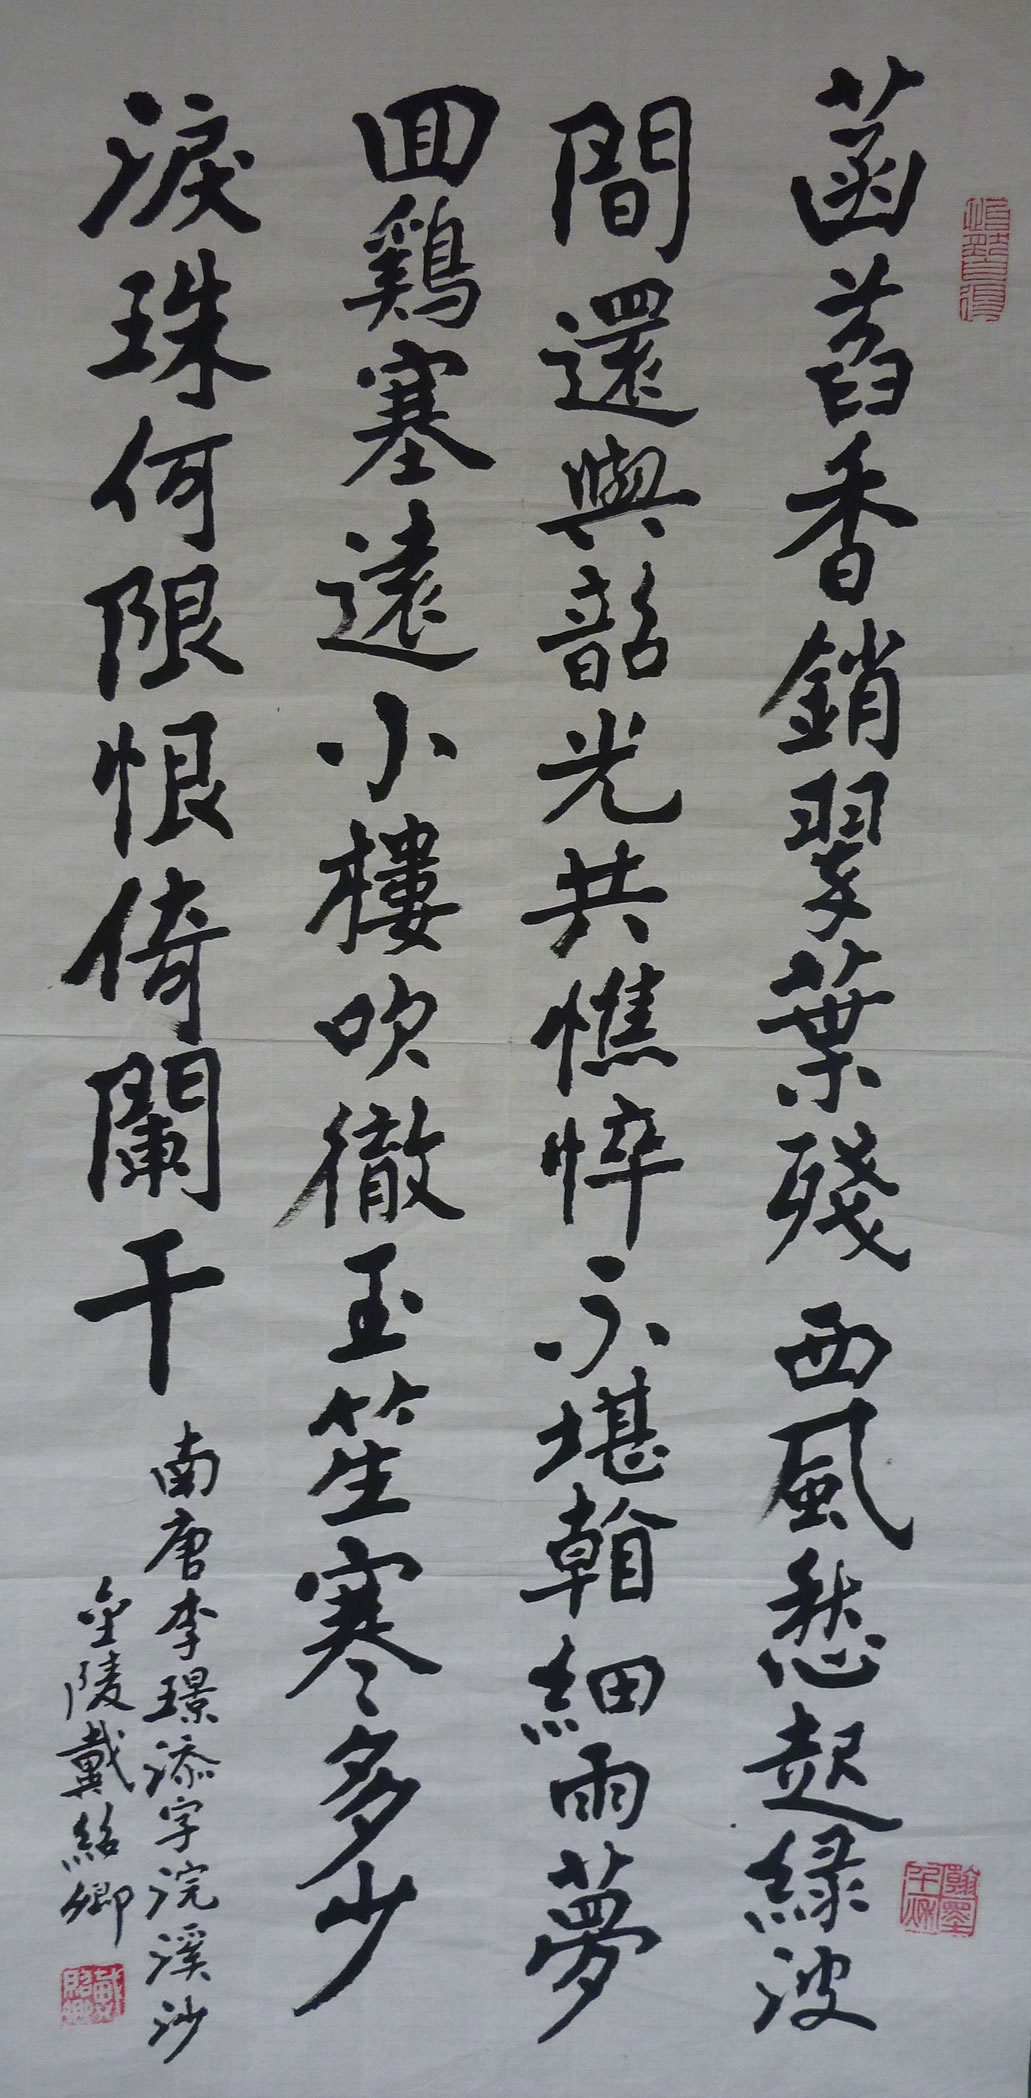 菡萏香銷翠葉殘西風愁起綠波
間還與韶光共憔悴不堪看細雨夢
回鷄塞遠小樓吹徹玉笙寒多少
淚珠何限恨倚闌干
南唐李璟添字浣溪沙
金陵戴紹卿
翰墨千秋